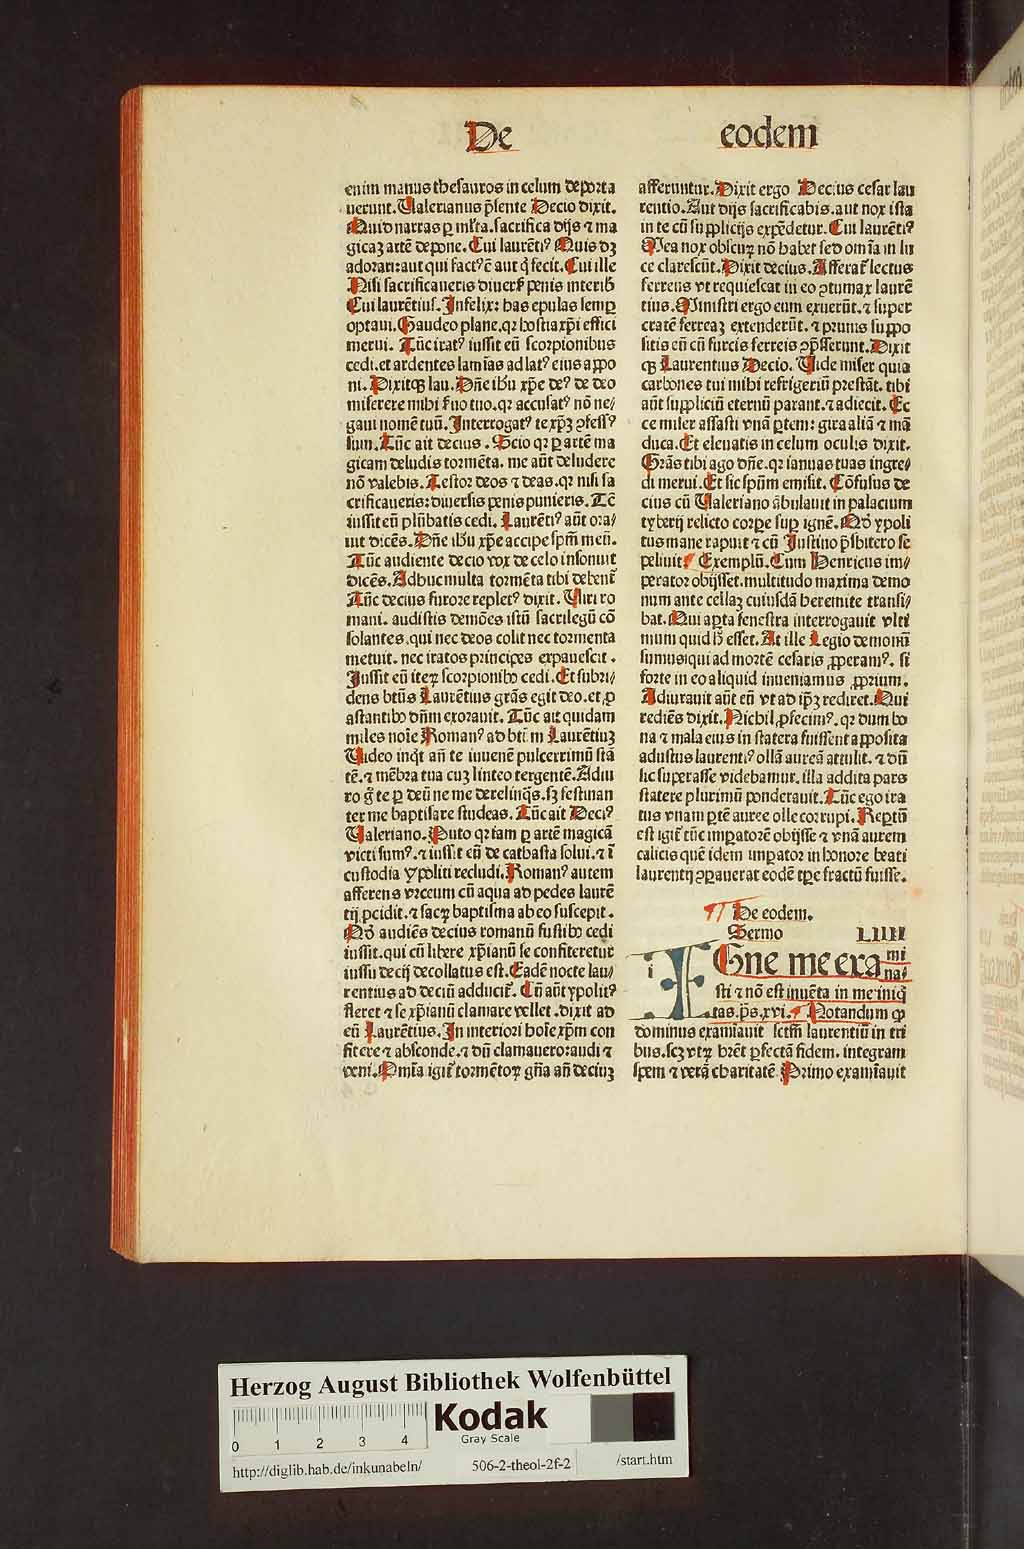 De eodem
enim manus thesauros in celum deporta
uerunt. Ualerianus p̄sente Decio dixit.
Quid narras ꝑ ml̓ta. sacrifica dijs ⁊ ma
gicaꝫ artē depone. Cui laurēti⁹ Quis dꝫ
adorari: aut qui fact⁹ ē aut q̇ fecit. Cui ille
Nisi sacrificaueris diuers̓ penis interib̓
Cui laurētius. Infelix: has epulas semꝑ
optaui. Gaudeo plane. qꝛ hostia xp̄i effici
merui. Tūc irat⁹ iussit eū scorpionibus
cedi. et ardentes lam̄as ad lat⁹ eius appo
ni. Dixitqꝫ lau. Dn̄e ih̓u xp̄e de⁹ de deo
miserere mihi s̓uo tuo. qꝛ accusat⁹ nō ne/
gaui nomē tuū. Interrogat⁹ te xp̄ꝫ ꝯfess⁹
sum. Tūc ait decius. Scio qꝛ ꝑ artē ma
gicam deludis tormēta. me aūt deludere
nō valebis. Testor deos ⁊ deas. qꝛ nisi sa
crificaueris: diuersis penis punieris. Tc̄
iussit eū plūbatis cedi. Laurēti⁹ aūt ora/
uit dicēs. Dn̄e ih̓u xp̄e accipe spm̄ meū.
Tūc audiente decio vox de celo insonuit
dicēs. Adhuc multa tormēta tibi debent̄
Tūc decius furore replet⁹ dixit. Uiri ro
mani. audistis demōes istū sacrilegū cō
solantes. qui nec deos colit nec tormenta
metuit. nec iratos principes expauescit.
Jussit eū iteꝝ scorpionibꝰ cedi. Et subri/
dens bt̄us Laurētius grās egit deo. et ꝓ
astantibꝰ dn̄m exorauit. Tūc ait quidam
miles noīe Roman⁹ ad bt̄m Laurētiuꝫ
Uideo inq̇t an̄ te iuuenē pulcerrimū stā
tē. ⁊ mēbra tua cuꝫ linteo tergentē. Adiu
ro g̊ te ꝑ deū ne me derelinq̄s. sꝫ festinan
ter me baptisare studeas. Tūc ait Deci⁹
Ualeriano. Puto qꝛ iam ꝑ artē magicā
victi sum⁹. ⁊ iussit eū de cathasta solui. ⁊ ī
custodia ypoliti recludi. Roman⁹ autem
afferens vrceum cū aqua ad pedes laurē
tij ꝓcidit. ⁊ sacꝝ baptisma ab eo suscepit.
Qd̓ audiēs decius romanū fustibꝰ cedi
iussit. qui cū libere xp̄ianū se confiteretur
iussu decij decollatus est. Eadē nocte lau/
rentius ad deciū adducit̄. Cū aūt ypolit⁹
fleret ⁊ se xp̄ianū clamare vellet. dixit ad
eū Laurētius. In interiori hoīe xp̄m con
fitere ⁊ absconde. ⁊ dū clamauero: audi ⁊
veni. Om̄ia igit̄ tormētoꝝ gn̄a an̄ deciuꝫ
afferuntur. Dixit ergo Decius cesar lau
rentio. Aut dijs sacrificabis. aut nox ista
in te cū supplicijs expēdetur. Cui laurēti⁹
Mea nox obscuꝝ nō habet sed om̄ia in lu
ce clarescūt. Dixit decius. Afferat̄ lectus
ferreus vt requiescat in eo ꝯtumax laurē
tius. Ministri ergo eum exuerūt. ⁊ super
cratē ferreaꝫ extenderūt. ⁊ prunis suppo
sitis eū cū furcis ferreis ꝯp̄sserunt. Dixit
qꝫ Laurentius Decio. Uide miser quia
carbones tui mihi refrigeriū prestāt. tibi
aūt suppliciū eternū parant. ⁊ adiecit. Ec
ce miser assasti vnā ꝑtem: gira aliā ⁊ mā
duca. Et eleuatis in celum oculis dixit.
Grās tibi ago dn̄e. qꝛ ianuas tuas ingre/
di merui. Et sic spm̄ emisit. Cōfusus de
cius cū Ualeriano ābulauit in palacium
tyberij relicto corꝑe suꝑ ignē. Qd̓ ypoli
tus mane rapuit ⁊ cū Justino p̄sbitero se
peliuit Exemplū. Cum Henricus im/
perator obijsset. multitudo maxima demo
num ante cellaꝫ cuiusdā heremite transi/
bat. Qui aꝑta fenestra interrogauit vlti
mum quid h̓ esset. At ille Legio demonū
sumus: qui ad mortē cesaris ꝓperam⁹. si
forte in eo aliquid inueniamus ꝓprium.
Adiurauit aūt eū vt ad ip̄ꝫ rediret. Qui
rediēs dixit. Nichil ꝓfecim⁹. qꝛ dum bo
na ⁊ mala eius in statera fuissent apposita
adustus laurenti⁹ ollā aureā attulit. ⁊ dū
sic superasse videbamur. illa addita pars
statere plurimū ponderauit. Tūc ego ira
tus vnam ꝑtē auree olle corrupi. Reptū
est igit̄ tūc imperatorē obijsse ⁊ vnā aurem
calicis quē idem imperator in honore beati
laurentij ꝯparauerat eodē tꝑe fractū fuisse.
De eodem.
Sermo LIIII
IGne me exami
na/
sti ⁊ nō est inuēta in me iniq̇
tas. ps̄. xvi. Notandum ꝙ
dominus examīauit sctm̄ laurentiū in tri
bus. scꝫ vtꝝ hr̄et ꝑfectā fidem. integram
spem ⁊ verā charitatē Primo examīauit
Herzog August Bibliothek Wolfenbüttel
0 1 2 3 4
Kodak
Gray Scale
http://diglib.hab.de/inkunabeln/ 506-2-theol-2f-2 /start.htm